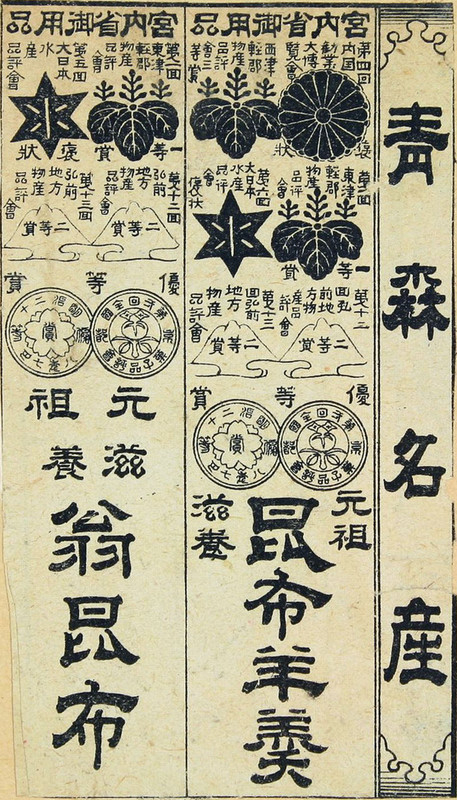 青森名産
宮内省御用品
第四回
内国
勧業
大博
覧会
褒状
西津
軽郡
物産
品評
会二
等賞
第二回
東津
軽郡
物産
品評
会
一等賞
第六回
大日本
水産
品評
会
褒状
第十二
回弘
前地
方物
産品
評会
二等賞
第十三
回弘前
地方
物産
品評会
二等賞
優等賞
賞
元祖
滋養
昆布羊羹
宮内省御用品
第二回
東津
軽郡
物産
品評
会
一等賞
第五回
大日本
水産
品評會
褒状
第十二回
弘前
地方
物産
品評會
二等賞
第十三回
弘前
地方
物産
品評會
二等賞
優等賞
賞
元祖
滋養
翁昆布